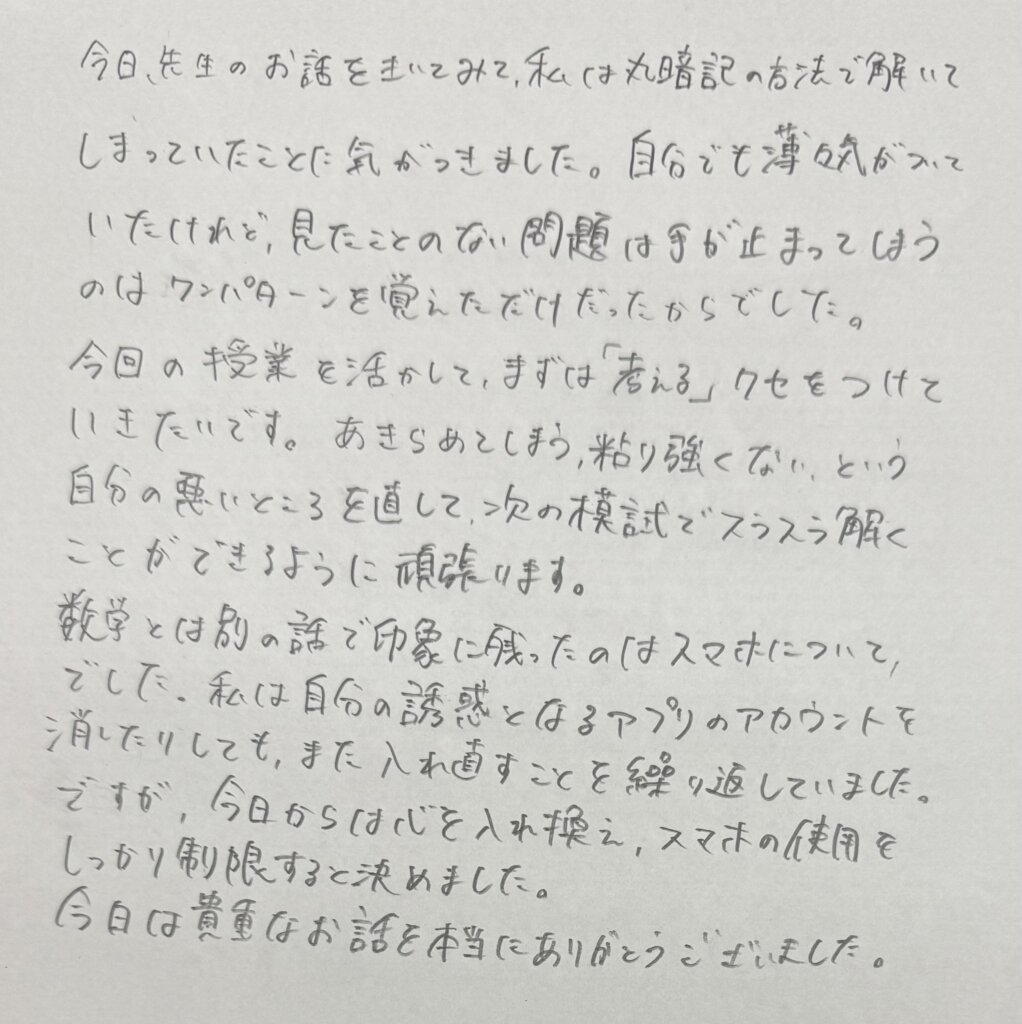 今日、先生のお話をきいてみて、私は丸暗記の方法で解いて
しまっていたことに気がつきました。自分でも薄々気がついて
いたけれど、見たことのない問題は手が止まってしまう
のはワンパターンを覚えただけだったからでした。
今回の授業を活かして、まずは「考える」クセをつけて
いきたいです。あきらめてしまう、粘り強くない、という
自分の悪いところを直して、次の模試でスラスラ解く
ことができるように頑張ります。
数学とは別の話で印象に残ったのはスマホについて、
でした。私は自分の誘惑となるアプリのアカウントを
消したりしても、また入れ直すことを繰り返していました。
ですが、今日からは心を入れ換え、スマホの使用を
しっかり制限すると決めました。
今日は貴重なお話を本当にありがとうございました。